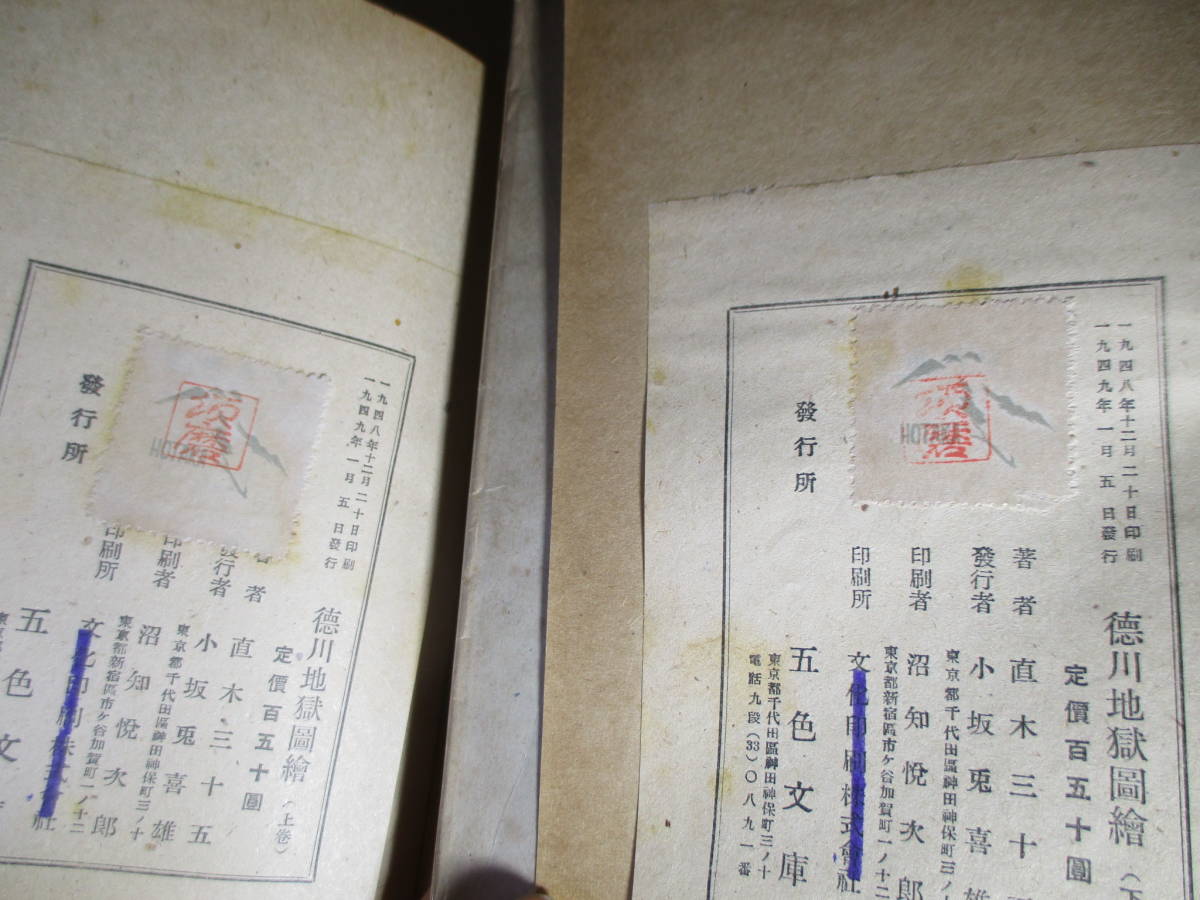 一九四八年十二月二十日印刷
一九四九年一月五日發行
德川地獄圖繪（下
定價百五十圓
著者 直木三十
發行者 小坂兎喜雄
東京都千代田區神田神保町三ノ
印刷者 沼知悅次郎
東京都新宿區市ケ谷加賀町一ノ十二
印刷所 文化印刷株式會社
發行所 五色文庫
東京都千代田區神田神保町三ノ十
電話九段（33）〇八九一番
HOT
一九四八年十二月二十日印刷
一九四九年一月五日發行
德川地獄圖繪（上卷）
定價百五十圓
著者 直木三十五
發行者 小坂兎喜雄
東京都千代田區神田神保町三ノ十
印刷者 沼知悅次郎
東京都新宿區市ケ谷加賀町一ノ十二
印刷所 文化印刷株式會社
發行所 五色文
東京都
HOT